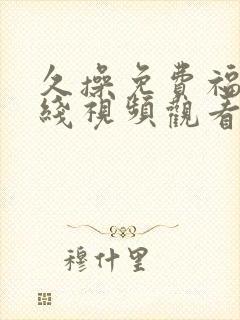 久操免費福
綫視頻觀看
穆什里